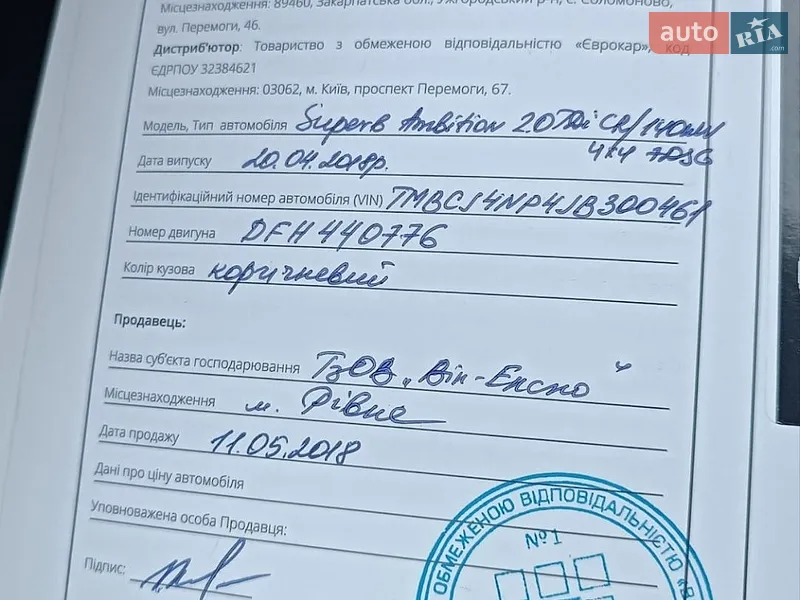 Місцезнаходження: 89460, Закарпатська обл., Ужгородський р-н, с. Соломоново,
вул. Перемоги, 46.
Дистриб'ютор: Товариство з обмеженою відповідальністю «Єврокар», код
ЄДРПОУ 32384621
Місцезнаходження: 03062, м. Київ, проспект Перемоги, 67.
Модель, Тип автомобіля Superb Ambition 2.0 TDI CR/140кW
4x4 7DSG
Дата випуску 20.04.2018р.
Ідентифікаційний номер автомобіля (VIN) TMBCJ4NP4JB300461
Номер двигуна DFH 440776
Колір кузова коричневий
Продавець:
Назва суб'єкта господарювання ТзОВ „Він-Експо"
Місцезнаходження м. Рівне
Дата продажу 11.05.2018
Дані про ціну автомобіля
Уповноважена особа Продавця:
Підпис:
ОБМЕЖЕНОЮ ВІДПОВІДАЛЬНІСТЮ «В
№1
auto RIA .com